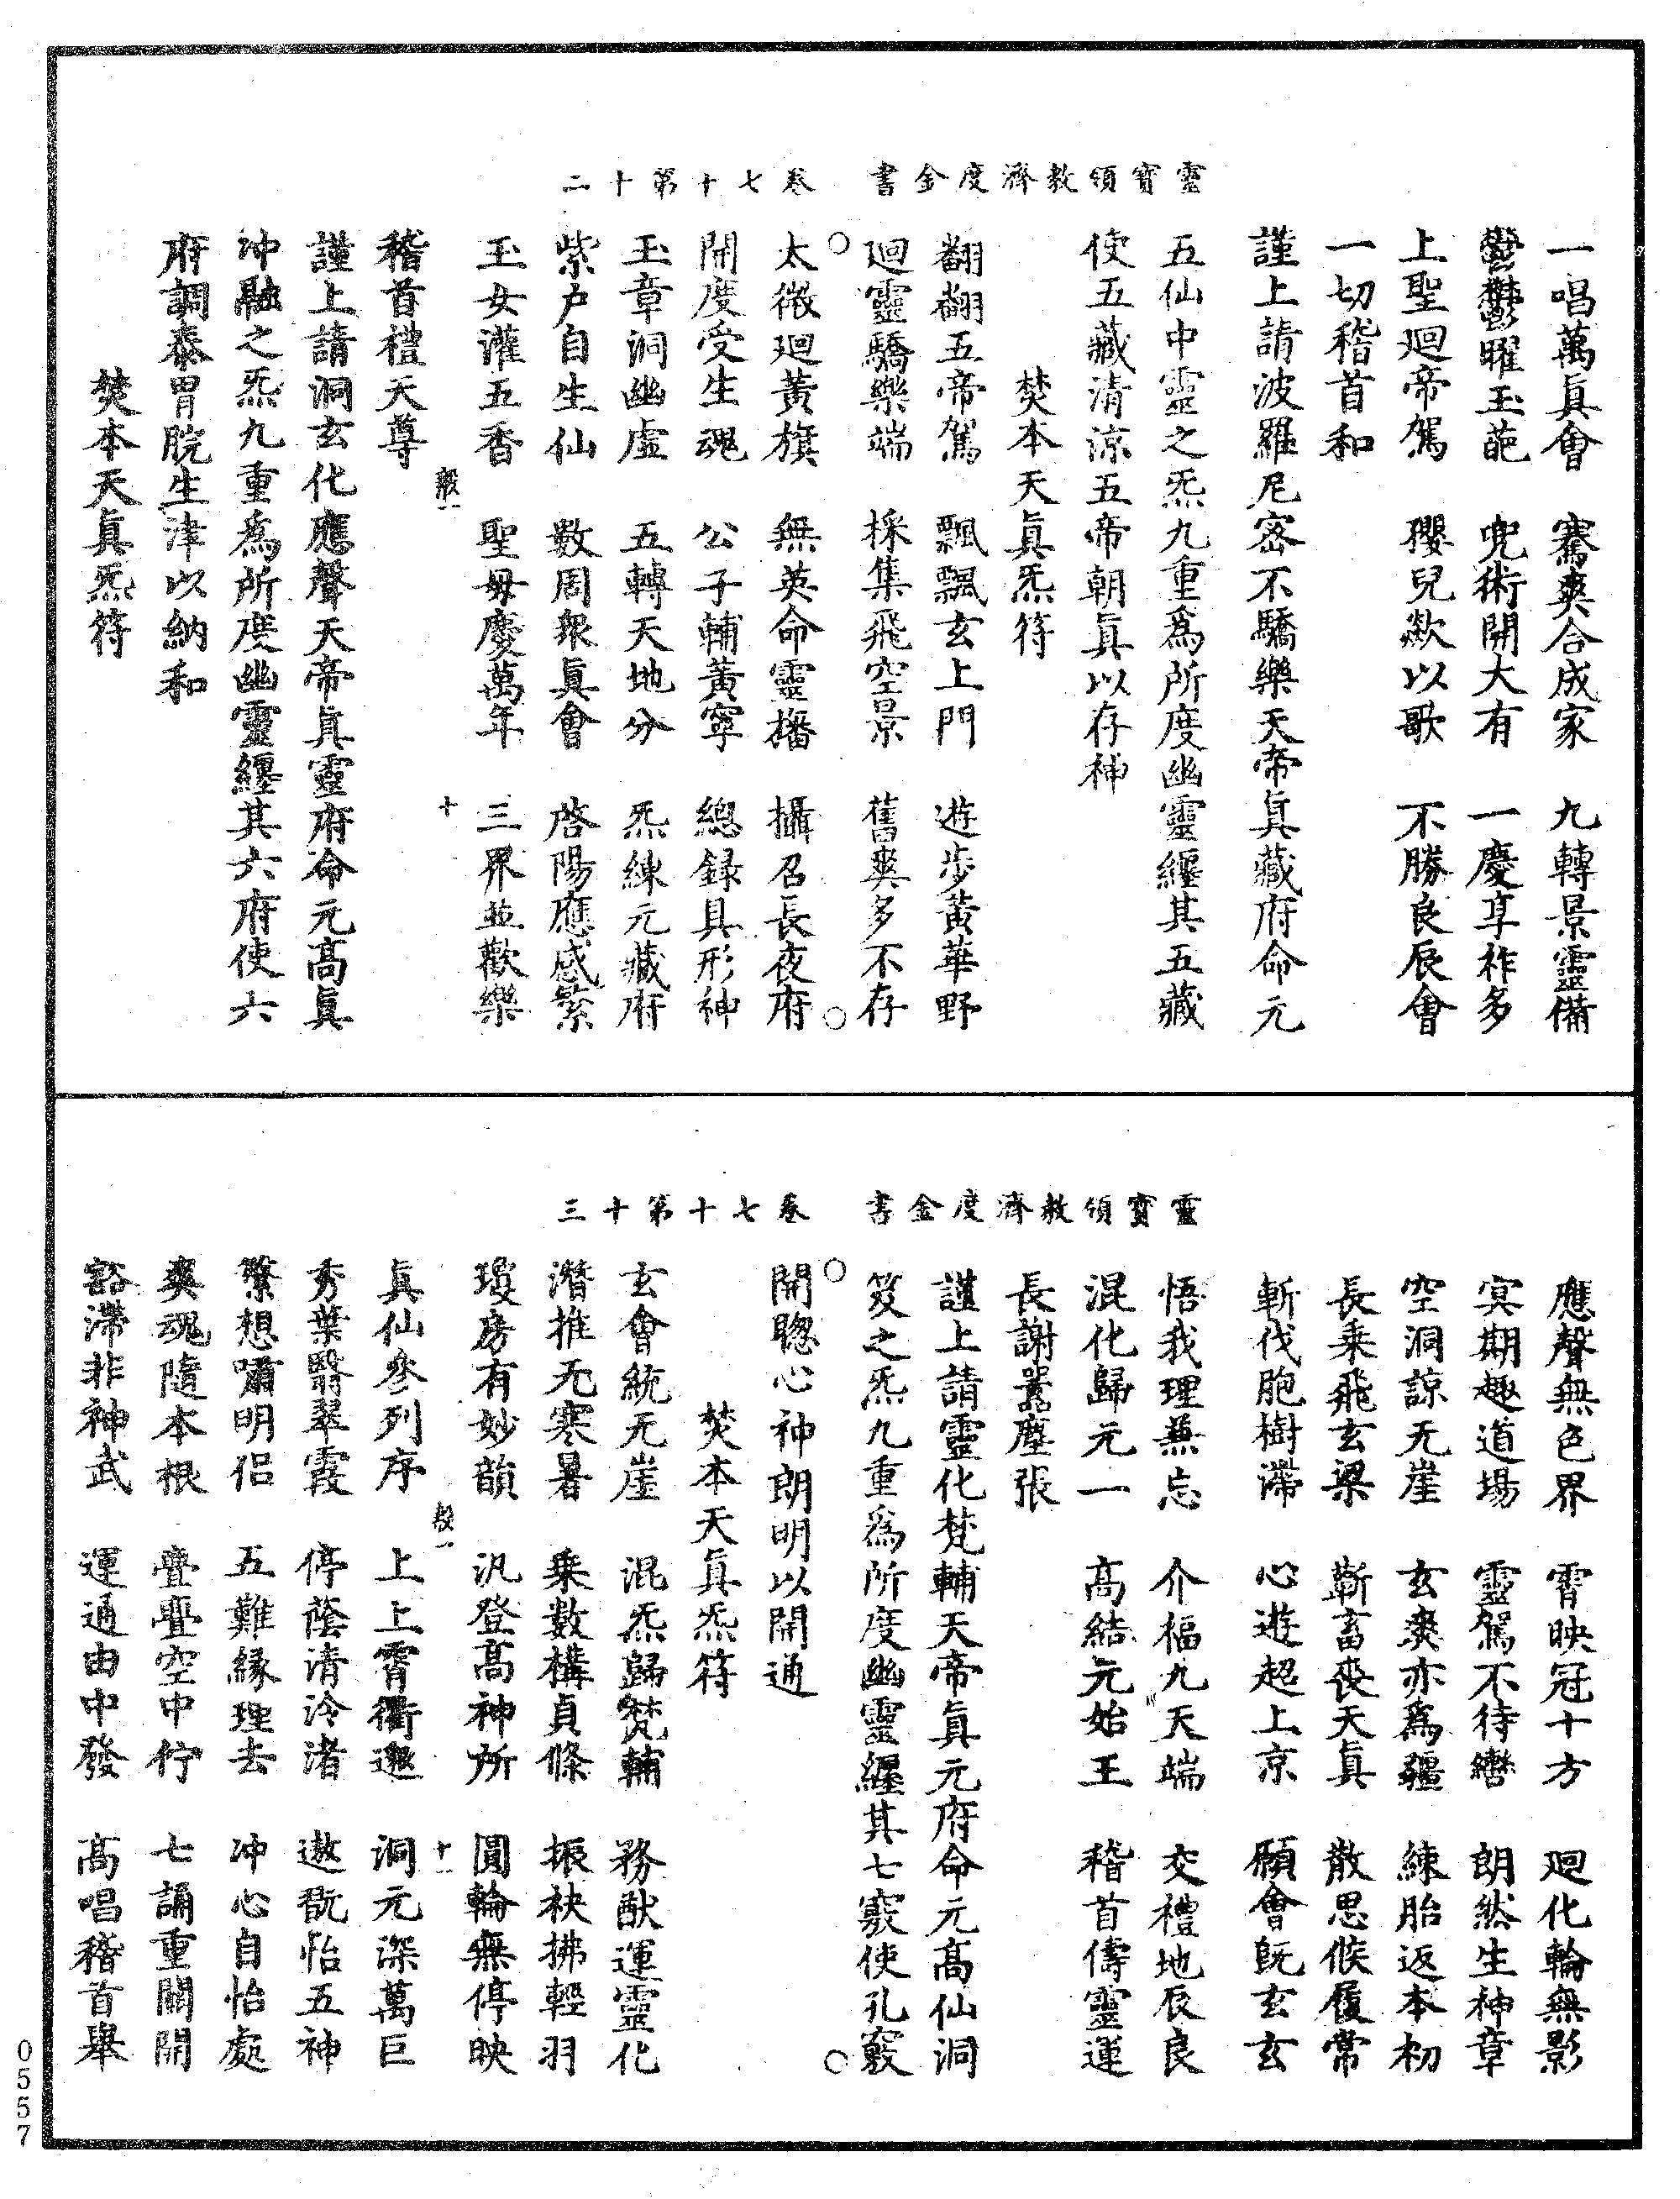 靈寶領教濟度金書　卷七十第十二
一唱萬眞會　騫爽合成家　九轉景靈備
鬱鬱曜玉葩　兜術開大有　一慶享祚多
上聖廻帝駕　瓔兒歘以歌　不勝良辰會
一切稽首和
謹上請波羅尼密不驕樂天帝眞藏府命元
五仙中靈之炁九重爲所度幽靈纒其五藏
使五藏清涼五帝朝眞以存神
焚本天眞炁符
翻翻五帝駕　飄飄玄上門　遊步黃華野
廻靈驕樂端　採集飛空景　舊爽多不存
太微廻黃旗　無英命靈旛　攝召長夜府
開度受生魂　公子輔黃寧　總録具形神
玉章洞幽虛　五轉天地分　炁練元藏府
紫户自生仙　數周衆眞會　啓陽應感繁
玉女灌五香　聖母慶萬年　三界並歡樂
稽首禮天尊
十
謹上請洞玄化應聲天帝眞靈府命元高眞
冲融之炁九重爲所度幽靈纒其六府使六
府調泰胃脘生津以納和
焚本天眞炁符
靈寶領教濟度金書　卷七十第十三
應聲無色界　霄映冠十方　廻化輪無影
㝠期趣道場　靈駕不待轡　朗然生神章
空洞諒无崖　玄爽亦爲疆　練胎返本初
長乘飛玄梁　蘄畜喪天眞　散思候履常
斬伐胞樹滯　心遊超上京　願會既玄玄
悟我理兼忘　介福九天端　交禮地辰良
混化歸元一　高結元始王　稽首儔靈運
長謝囂塵張
謹上請靈化梵輔天帝眞元府命元高仙洞
笈之炁九重爲所度幽靈纒其七竅使孔竅
開聰心神朗明以開通
焚本天眞炁符
玄會統无崖　混炁歸梵輔　務猷運靈化
潛推无寒暑　乘數構貞條　振袂拂輕羽
瓊房有妙韻　汎登高神所　圓輪無停映
眞仙參列序　上上霄衢邈　洞元深萬巨
十一
秀葉翳翠霞　停蔭清泠渚　遨翫怡五神
繁想嘯明侣　五難緣理去　冲心自怡處
爽魂隨本根　亹亹空中佇　七誦重關開
豁滯非神武　運通由中發　高唱稽首舉
0557